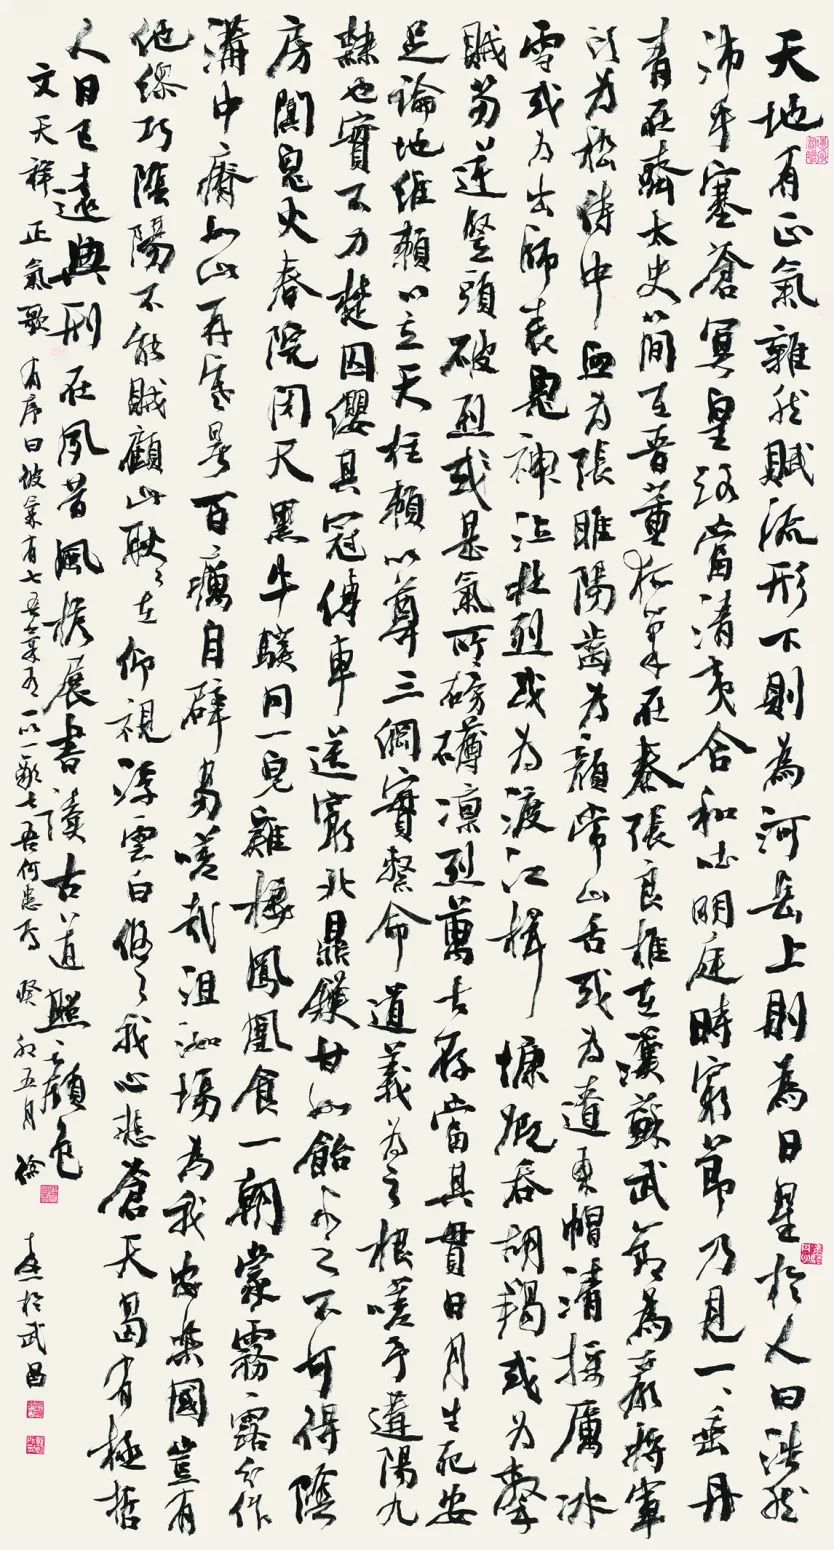 天地有正氣雜然賦流形下則為河嶽上則為日星於人曰浩然
沛乎塞蒼冥皇路當清夷含和吐明庭時窮節乃見一一垂丹
青在齊太史簡在晉董狐筆在秦張良椎在漢蘇武節為嚴將軍
頭為嵇侍中血為張睢陽齒為顏常山舌或為遼東帽清操厲冰
雪或為出師表鬼神泣壯烈或為渡江楫慷慨吞胡羯或為擊
賊笏逆豎頭破烈或是氣所磅礴凜烈萬古存當其貫日月生死安
足論地維賴以立天柱賴以尊三綱實繫命道義為之根嗟予遘陽九
隸也實不力楚囚纓其冠傳車送窮北鼎鑊甘如飴求之不可得陰
房闃鬼火春院閉天黑牛驥同一皂雞棲鳳凰食一朝蒙霧露分作
溝中瘠如此再寒暑百癘自辟易嗟哉沮洳場為我安樂國豈有
他繆巧陰陽不能賊顧此耿耿在仰視浮雲白悠悠我心悲蒼天曷有極哲
人日已遠典刑在夙昔風檐展書讀古道照顏色
文天祥正氣歌 有序曰彼氣有七吾氣有一以一敵七吾何患焉 癸卯五月 徐 於武昌